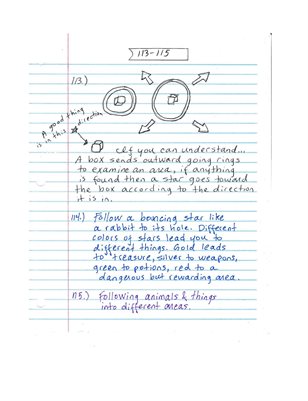 113-115
113.)
A good thing
is in this direction
If you can understand...
A box sends outward going rings
to examine an area, if anything
is found then a star goes toward
the box according to the direction
it is in.
114.) Follow a bouncing star like
a rabbit to its hole. Different
colors of stars lead you to
different things. Gold leads
to treasure, silver to weapons,
green to potions, red to a
dangerous but rewarding area.
115.) Following animals & things
into different areas.